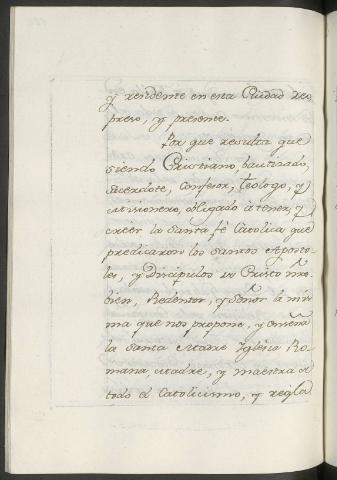 y residente en esta Ciudad reo
preso, y presente.
Por que resulta que
siendo Cristiano, bautizado,
Sacerdote, Confesor, Teologo, y
Misionero, obligado à tener, y
creer la Santa fè Catolica que
predicaron los Santos Aposto-
les, y Discipulos de Cristo nro.
bien, Redentor, y Señor à mis-
ma que nos propone, y enseña
la Santa Madre Yglesia Ro-
mana, Madre, y maestra de
todo el Catolicismo, y regla